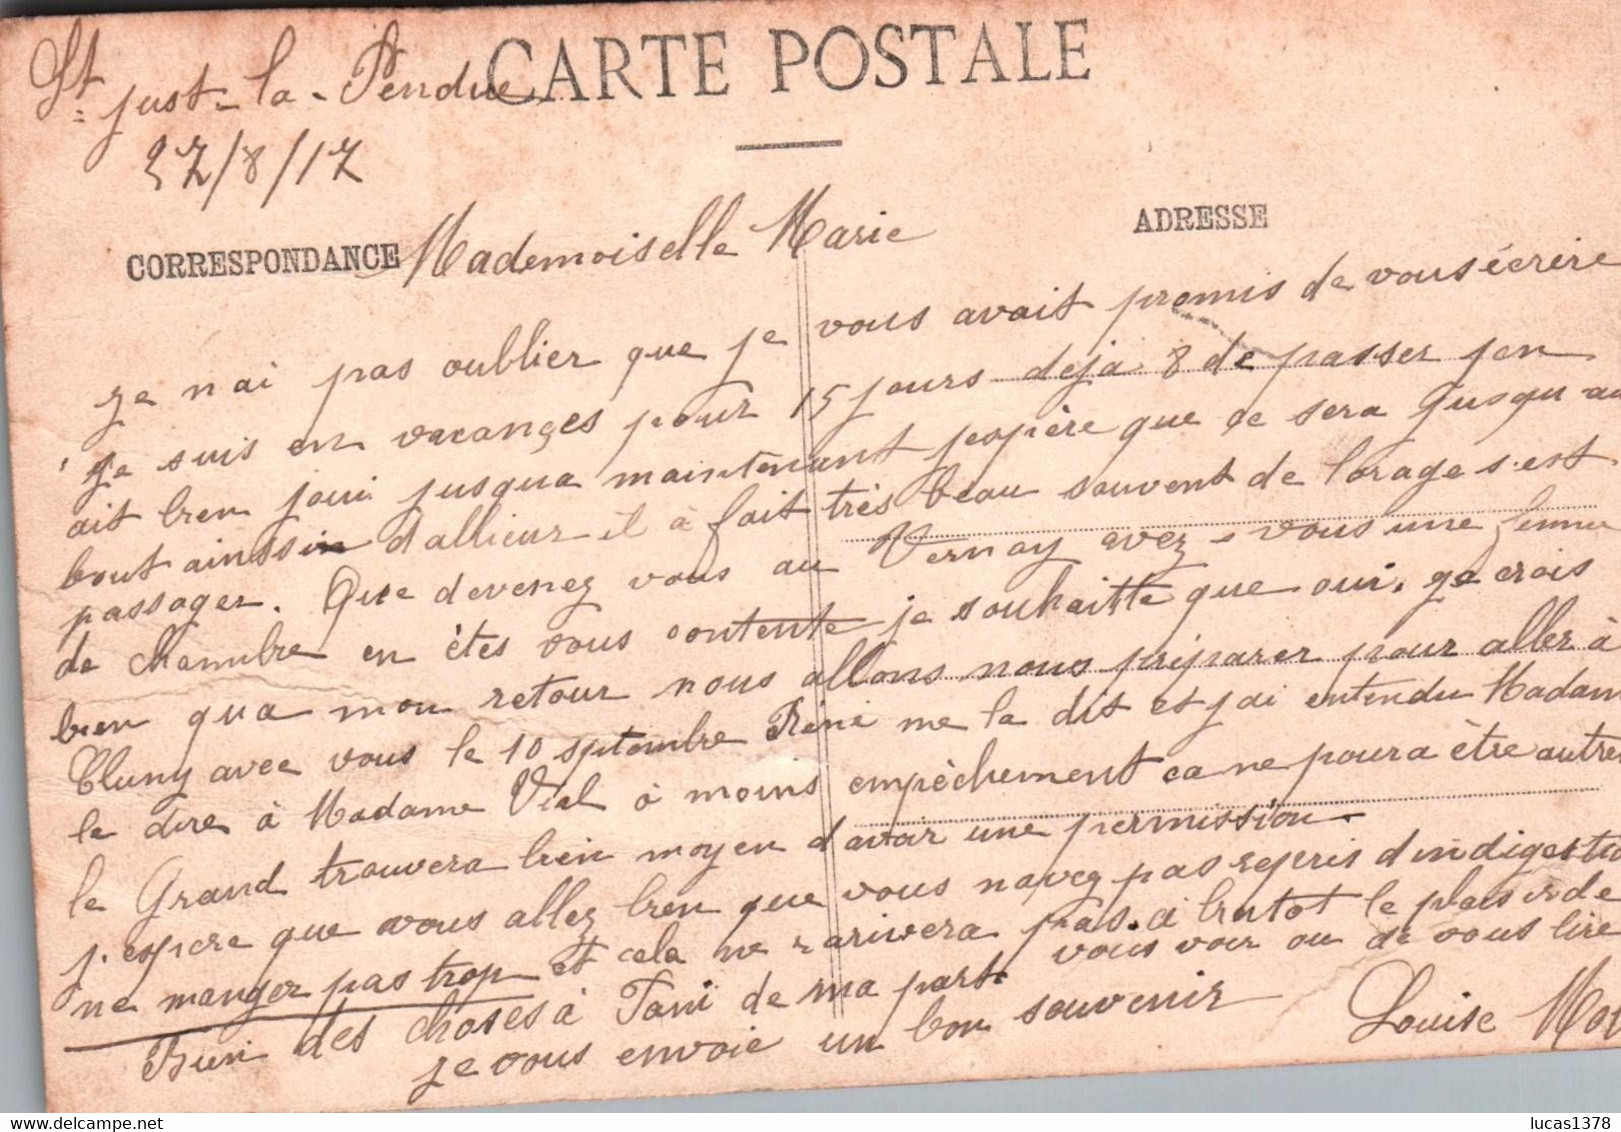 St just-la-Pendue
CARTE POSTALE
27/8/17
CORRESPONDANCE
ADRESSE
Mademoiselle Marie
Je nai pas oublier que je vous avait promis de vous écrire
Je suis en vacanses pour 15 jours deja 8 de passer jen
ait bien joui jusqua maintenant jespère que ce sera jusqu au
bout ainssin dallieur il à fait très beau souvent de lorage s'est
passager. Que devenez vous au Vernay avez-vous une femme
de chambre en êtes vous contente je souhaitte que oui. je crois
bien qua mon retour nous allons nous préparer pour aller à
Cluny avec vous le 10 septembre Réné me la dit et j'ai entendu Madam
le dire à Madame Vial à moins empêchement ca ne poura être autre
le Grand trouvera bien moyen davoir une permission.
j'espere que vous allez bien que vous navez pas repris dindigestio
ne manger pas trop et cela ne rarivera pas. à bientot le plaisir de
vous voir ou de vous lire
Bien des choses à Fani de ma part.
je vous envoie un bon souvenir
Louise
delcampe.net
lucas1378